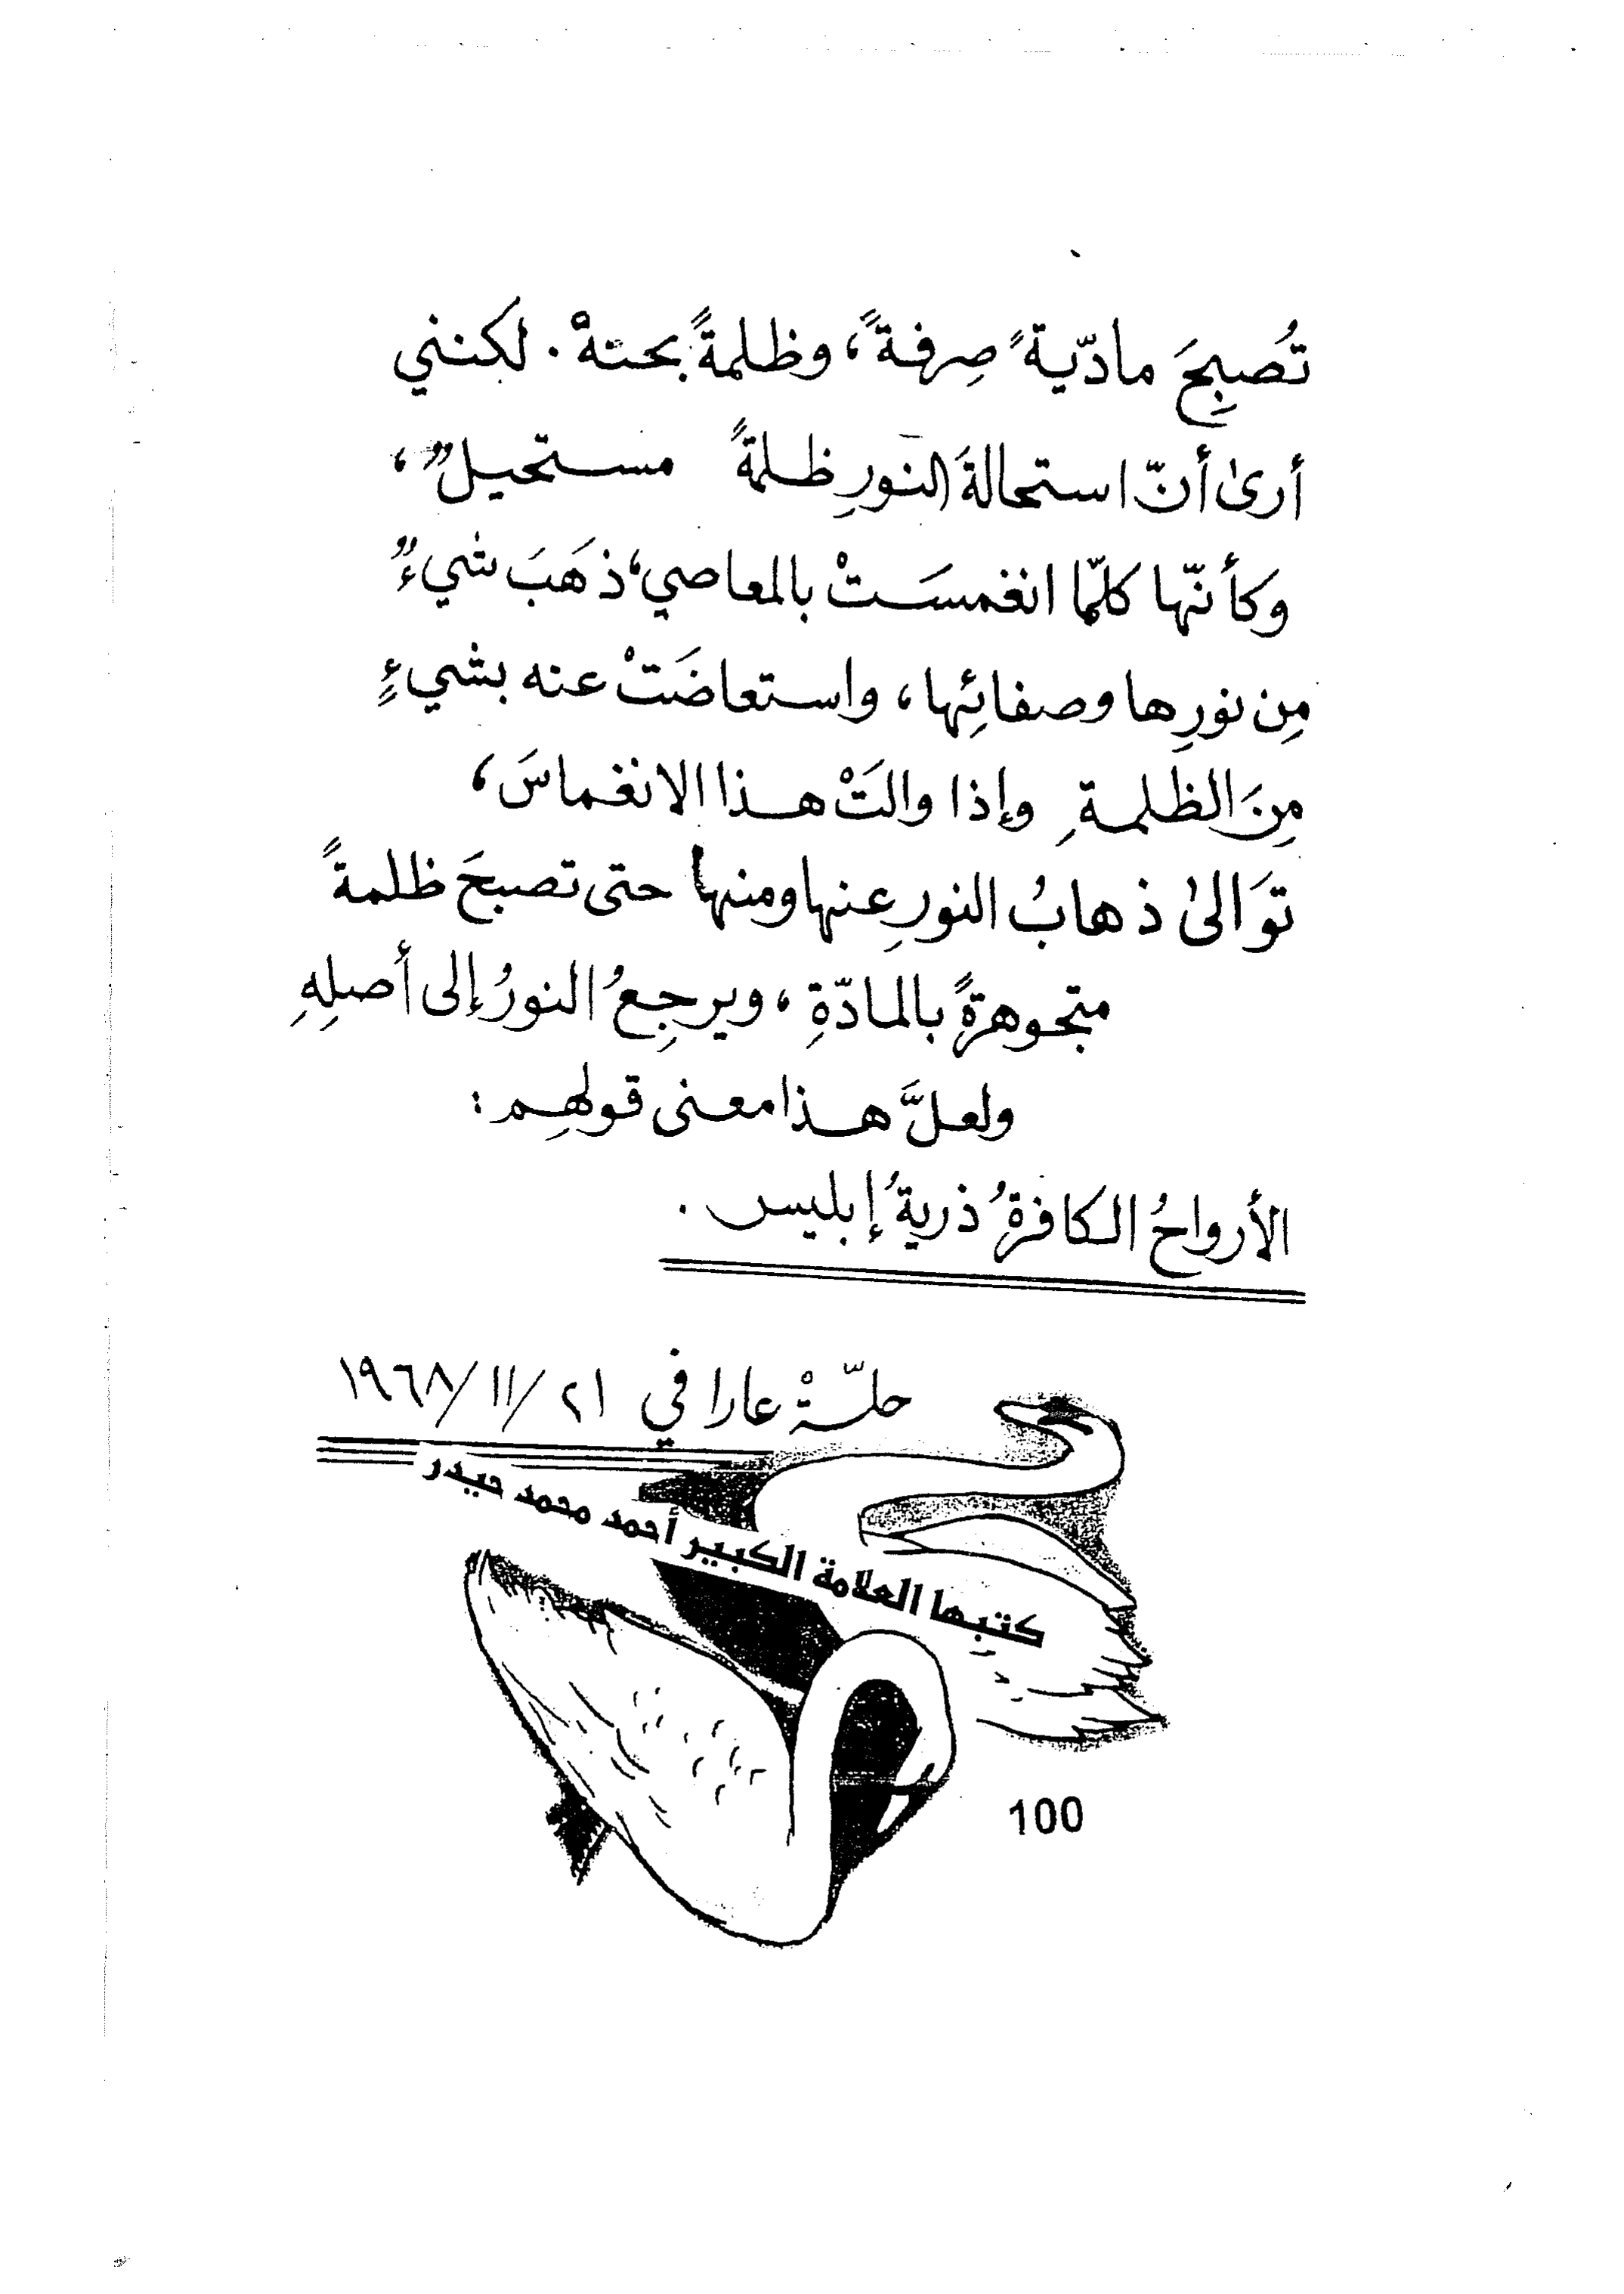 تُصبِحَ مادّيةً صِرفةً، وظلمةً بحتهْ. لكنني
أرىٰ أنّ استحالةَ النورِ ظلمةً مستحيلٌ،
وكأنّها كلّما انغمسَتْ بالمعاصي، ذهَبَ شيءٌ
مِن نورِها وصفائِها، واستعاضَتْ عنه بشيءٍ
مِنَ الظلمةِ وإذا والَتْ هذا الانغماسَ،
توَالىٰ ذهابُ النورِ عنها ومنها حتى تصبحَ ظلمةً
متجوهرةً بالمادّةِ، ويرجِعُ النورُ إلى أصلِهِ
ولعلَّ هذا معنى قولهِم:
الأرواحُ الكافرةُ ذريةُ إبليس.
حلّةْ عارا في ٢١/١١/١٩٦٨
كتبها العلامة الكبير أحمد محمد حيدر
100